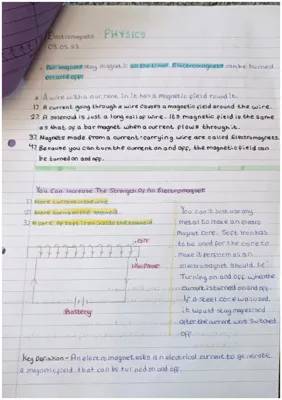 Electromagnets PHYSICS
03.05.23
• Bar magnets stay magnetic all the time. Electromagnets can be turned
on and off.
A wire with a current in it has a magnetic field round it.
1) A current going through a wire causes a magnetic field around the wire.
2) A solenoid is just a long coil of wire. Its magnetic field is the same
as that of a bar magnet when a current flows through it.
3) Magnets made from a current-carrying wire are called Electromagnets.
4) Because you can turn the current on and off, the magnetic field can
be turned on and off.
You Can Increase The Strength Of An Electromagnet
1) More current in the wire
2) More turns on the solenoid
3) A core of soft iron inside the solenoid
You can't just use any
metal to make an electro
magnet core. Soft iron has
to be used for the core to
make it perform as an
electromagnet should be:
Turning on and off when the
current is turned on and off.
If a steel core was used,
it would stay magnetised
after the current was switched
off.
Battery
Key Definition - An electromagnet uses an electrical current to generate
a magnetic field that can be turned on and off.